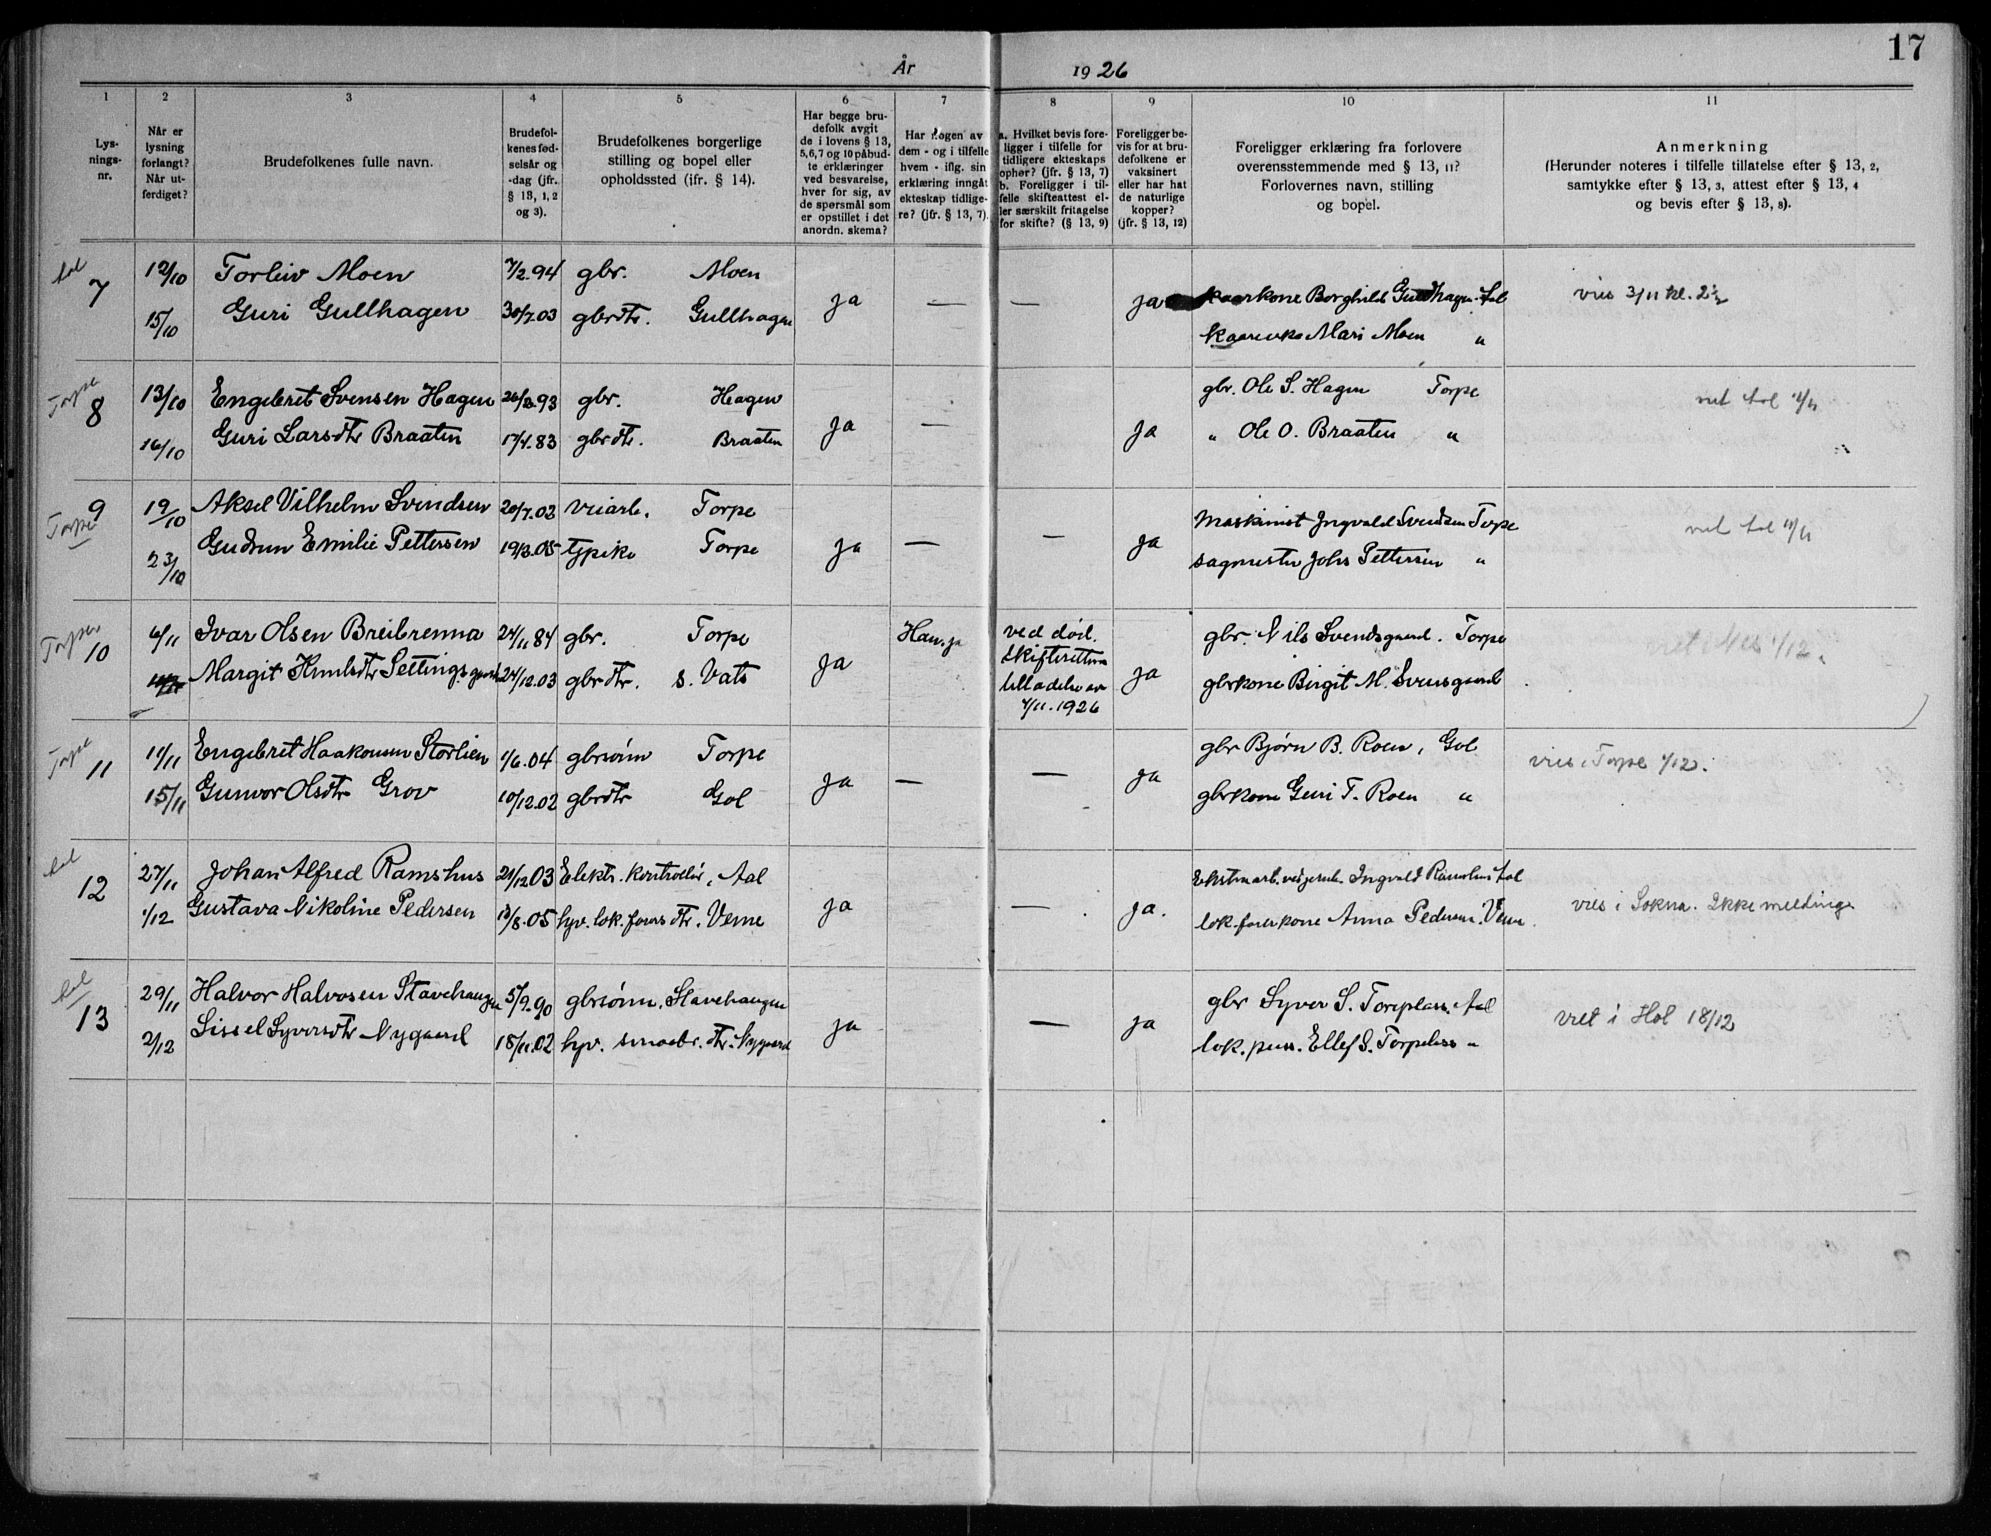 17
År 1926
1 2 3 4 5 6 7 8 9 10 11
Lys-
nings-
nr.
Når er
lysning
forlangt?
Når ut-
ferdiget?
Brudefolkenes fulle navn.
Brudefol-
kenes fød-
selsår og
-dag (jfr.
§ 13, 1, 2
og 3).
Brudefolkenes borgerlige
stilling og bopel eller
opholdssted (ifr. § 14).
Har begge bru-
defolk avgit
de i lovens § 13,
5,6,7 og 10 påbud-
te erklæringer
ved besvarelse,
hver for sig, av
de spørsmål som
er opstillet i det
anordn. skema?
Har nogen av
dem - og i tilfelle
hvem - iflg. sin
erklæring inngåt
ekteskap tidlige-
re? (jfr. § 13, 7).
a. Hvilket bevis fore-
ligger i tilfelle for
tidligere ekteskaps
ophør? (jfr. § 13, 7)
b. Foreligger i til-
felle skifteattest el-
ler særskilt fritagelse
for skifte? (§ 13, 9)
Foreligger be-
vis for at bru-
defolkene er
vaksinert
eller har hat
de naturlige
kopper?
(jfr. § 13, 12)
Foreligger erklæring fra forlovere
overensstemmende med § 13, 11?
Forlovernes navn, stilling
og bopel.
Anmerkning
(Herunder noteres i tilfelle tillatelse efter § 13, 2,
samtykke efter § 13, 3, attest efter § 13, 4
og bevis efter § 13, 8).
Aal 7 12/10 Torleiv Moen 7/2.94 gbr. Moen ja — — ja kaarkone Borghild Gullhagen Aal vies 3/11 kl. 2½
15/10 Guri Gullhagen 30/7.03 gbrdtr. Gullhagen Mari Moen "
Torpe 8 13/10 Engebret Svensen Hagen 93 gbr. Hagen ja — ja gbr. Ole S. Hagen Torpe viet Aal
16/10 Guri Larsdtr Braaten 83 gbrdtr. Braaten " Ole O. Braaten "
Torpe 9 19/10 Aksel Vilhelm Svendsen 20/7.02 veiarb. Torpe ja — — ja Maskinist Ingvald Svendsen Torpe viet Aal
23/10 Gudrun Emilie Pettersen 19/3.05 tjpike Torpe sagmester Johs Pettersen "
Torpe 10 6/11 Ivar Olsen Breibrenna 24/11 84 gbr. Torpe ja Han. ja ved død. ja gbr. Nils Svendsgaard. Torpe viet Nes 1/12.
Margit 24/12.03 gbrdtr. S. Vats skifterettens gbrkone Birgit M. Svensgaard
tilladelse av
4/11.1926
Torpe 11 11/11 Engebret Haakonsen Storlien 1/6.04 gbrsønn Torpe ja — — ja gbr Bjørn B. Roen, Gol vies i Torpe 4/12.
15/11 Gunvor Olsdtr Grov 10/12.02 gbrdtr Gol gbrkone Guri T. Roen "
Aal 12 27/11 Johan Alfred Ramshus 21/12 03 Elektr. kontroellør, Aal ja — ja. Ingvald Ramshus Aal vies i Sokna. Ikke melding
1/12 Gustava Nikoline Pedersen 13/8.05 hjv. lok.førers dtr. Veme lok.førerkone Anna Pedersen. Veme
Aal 13 29/11 Halvor Halvosen Stavehaugen 5/9.90 gbrsønn. Stavehaugen ja — ja gbr Syver S. Torpeplass. Aal viet i Hol 18/12
2/12 Sissel Syversdtr Nygaard 18/11.02 hjv. smaabr. dtr. Nygaard lok.puss. Ellef S. Torpeplass "